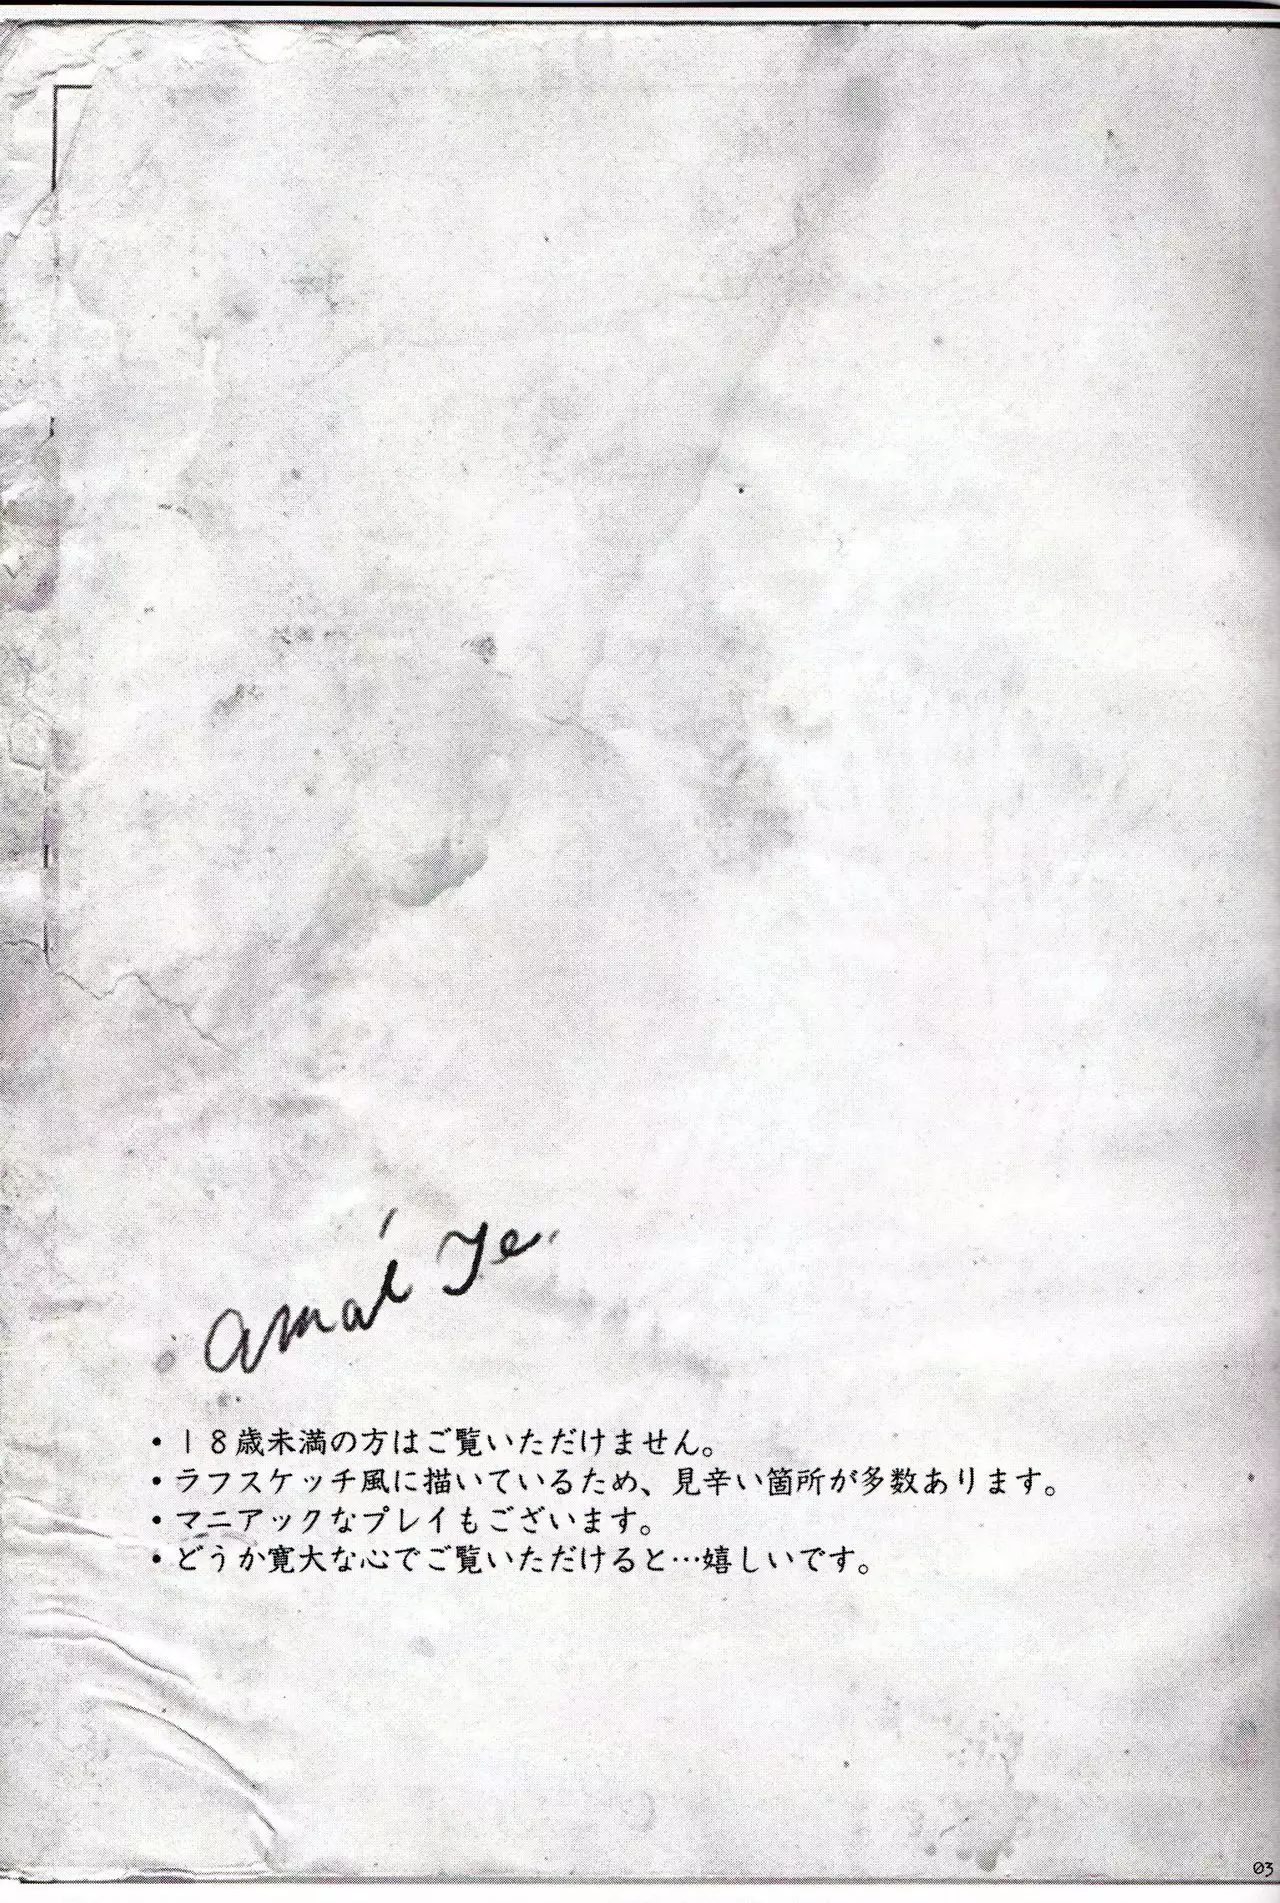 amai Te
・18歳未満の方はご覧いただけません。
・ラフスケッチ風に描いているため、見辛い箇所が多数あります。
・マニアックなプレイもございます。
・どうか寛大な心でご覧いただけると…嬉しいです。
03